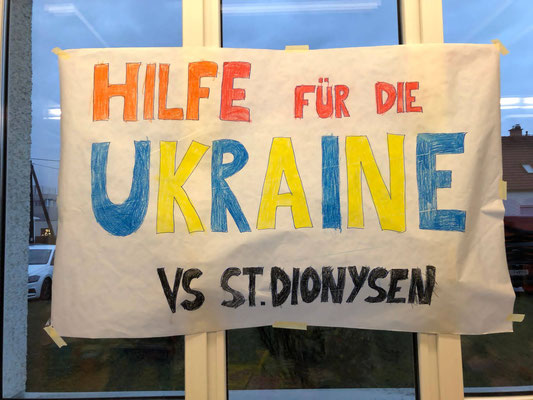 HILFE FÜR DIE
UKRAINE
VS ST.DIONYSEN